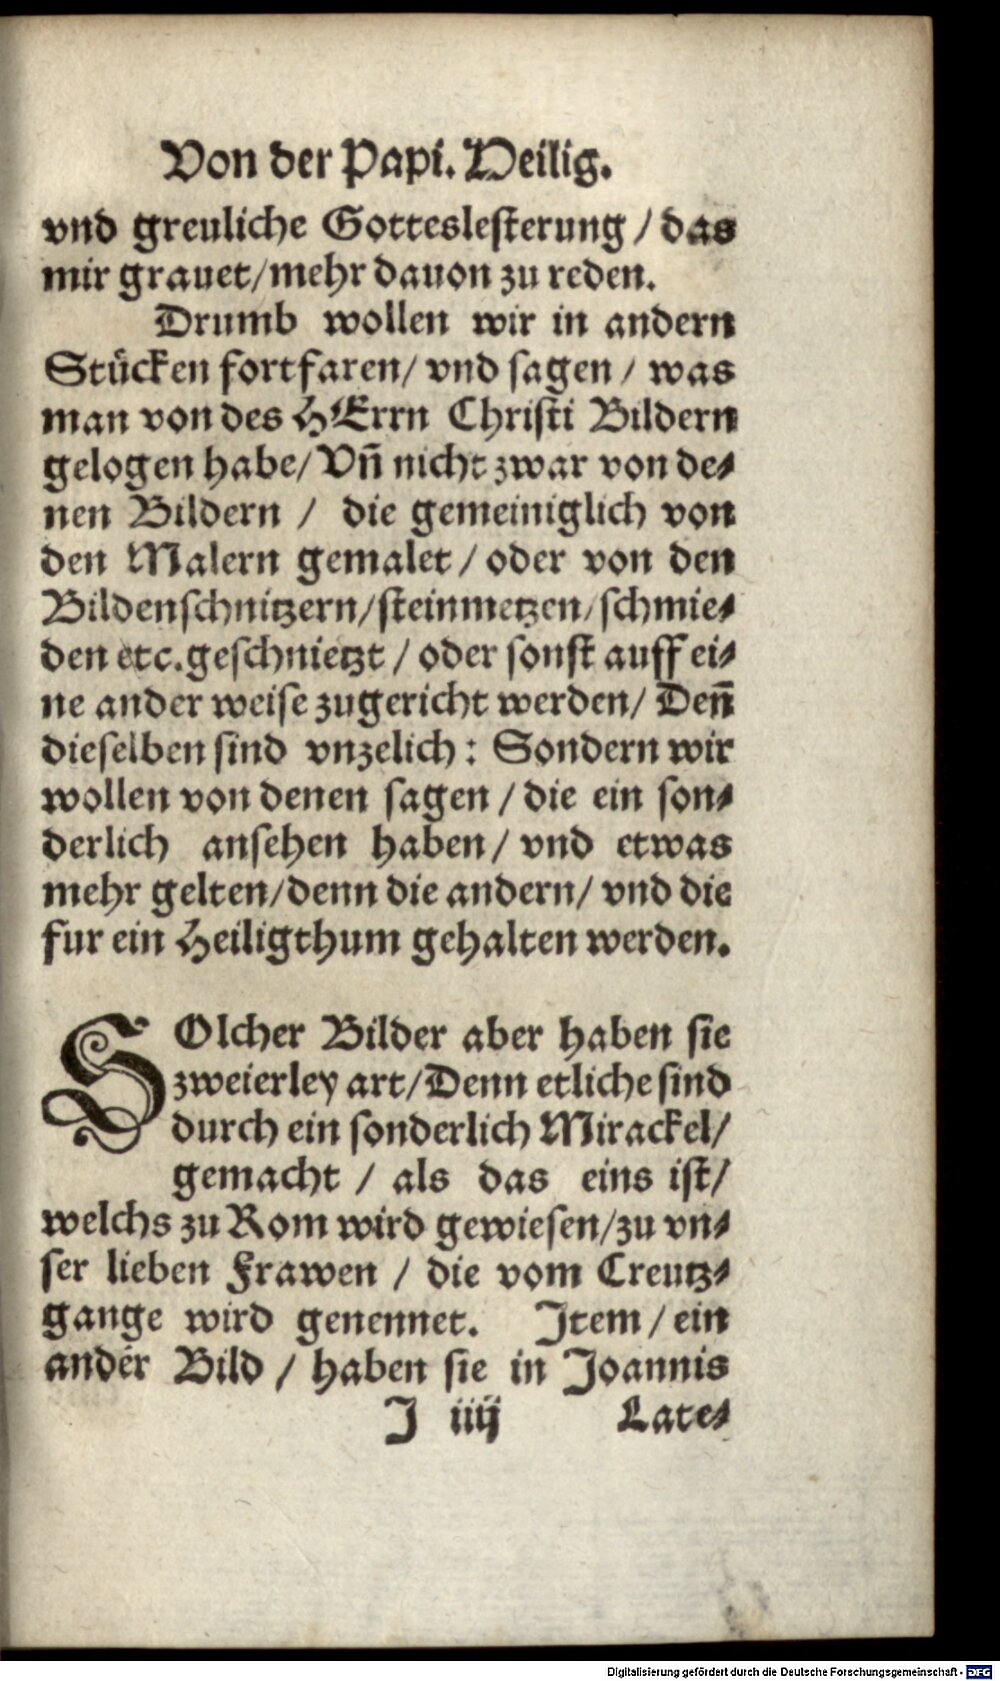 Von der Papi. Heilig.
vnd greuliche Gotteslesterung / das
mir grauet/mehr dauon zu reden.
Drumb wollen wir in andern
Stücken fortfaren/ vnd sagen / was
man von des HErrn Christi Bildern
gelogen habe/ Vñ nicht zwar von de⸗
nen Bildern / die gemeiniglich von
den Malern gemalet / oder von den
Bildenschnitzern/steinmetzen/schmie⸗
den etc.geschnietzt / oder sonst auff ei⸗
ne ander weise zugericht werden/ Deñ
dieselben sind vnzelich: Sondern wir
wollen von denen sagen / die ein son⸗
derlich ansehen haben/ vnd etwas
mehr gelten/denn die andern/ vnd die
fur ein Heiligthum gehalten werden.
SOlcher Bilder aber haben sie
zweierley art/Denn etliche sind
durch ein sonderlich Mirackel/
gemacht / als das eins ist/
welchs zu Rom wird gewiesen/zu vn⸗
ser lieben Frawen / die vom Creutz⸗
gange wird genennet. Item / ein
ander Bild / haben sie in Joannis
J iiij Late⸗
Digitalisierung gefördert durch die Deutsche Forschungsgemeinschaft - DFG